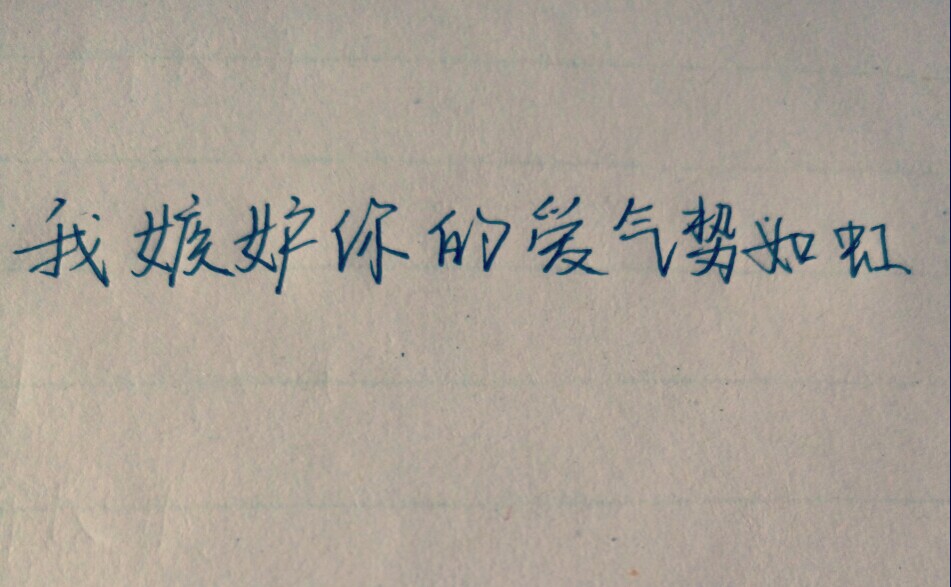 我嫉妒你的爱气势如虹